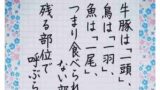 牛豚は「一頭」、
鳥は「一羽」、
魚は「一尾」、
つまり食べられ
ない部
残る部位で
呼ぶ